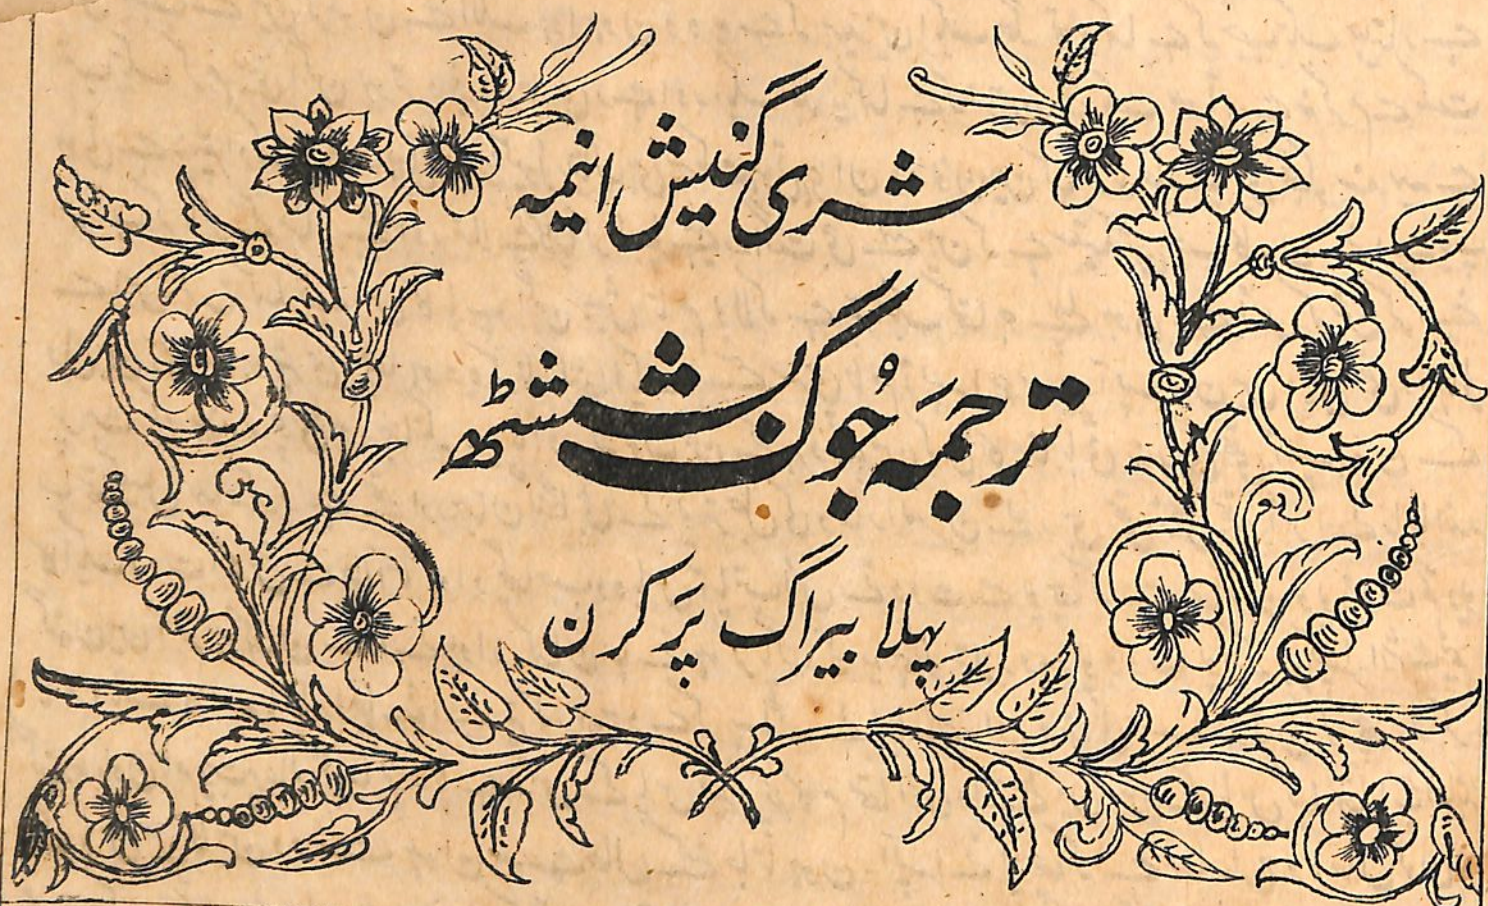 شری گنیش اینمہ
ترجمَہ جُوگ بششٹھ
پہلا بیراگ پَرکرن